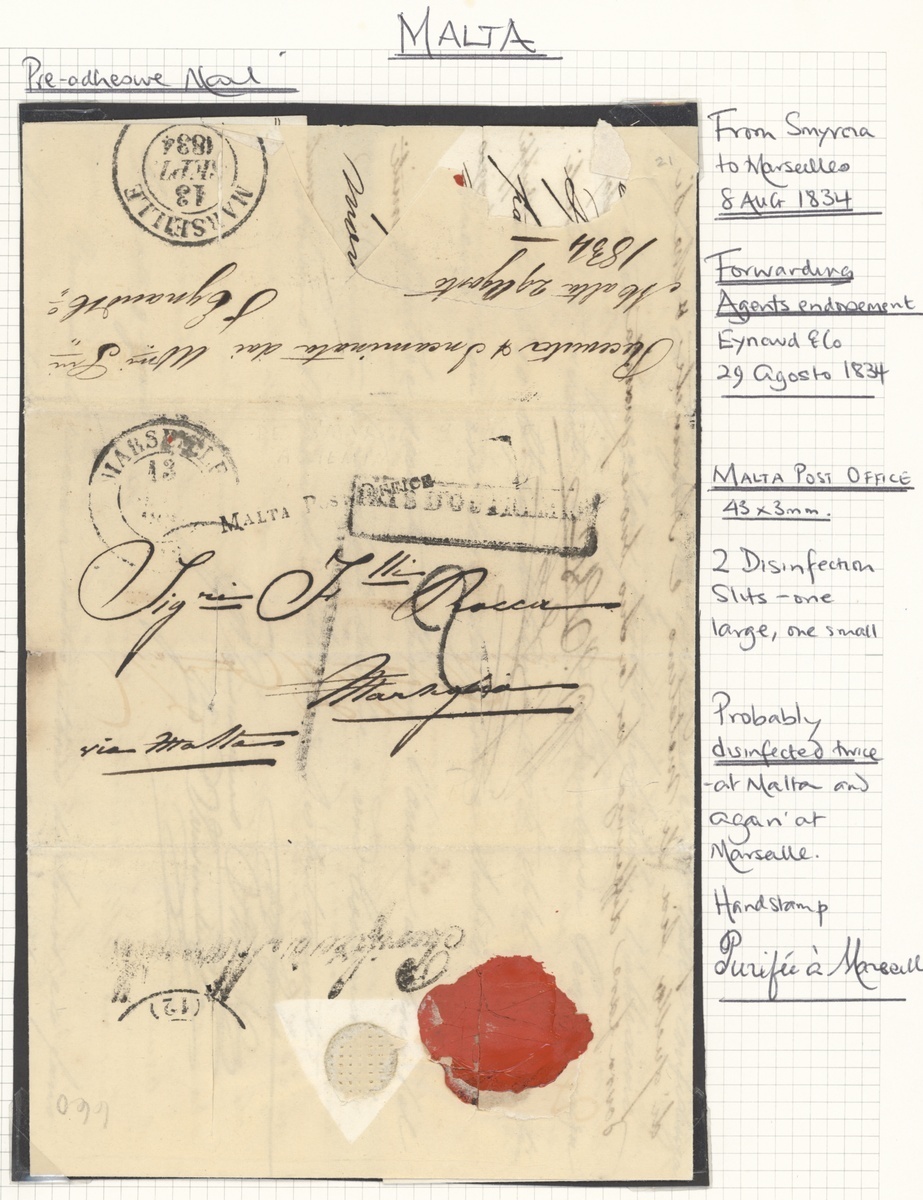 MALTA
Pre-adhesive Mail
From Smyrna
to Marseilles
8 AUG 1834
Forwarding
Agents endorsement
Eynard & Co
29 Agosto 1834
MALTA POST OFFICE
43 x 3mm.
2 Disinfection
Slits - one
large, one small
Probably
disinfected twice
- at Malta and
again at
Marseille.
Handstamp
Purifié à Marseill
MARSEILLE
13
SEPT
1834
21
Ricevuta & Incaminata dai
Malta 29 Agosto
1834
MARSEILLE
13
MALTA POST OFFICE
PAYS D'OUTREMER
Sigri Flli Rocca
Marsiglia
via Malta
Purifiée à Marseille
(12)
660